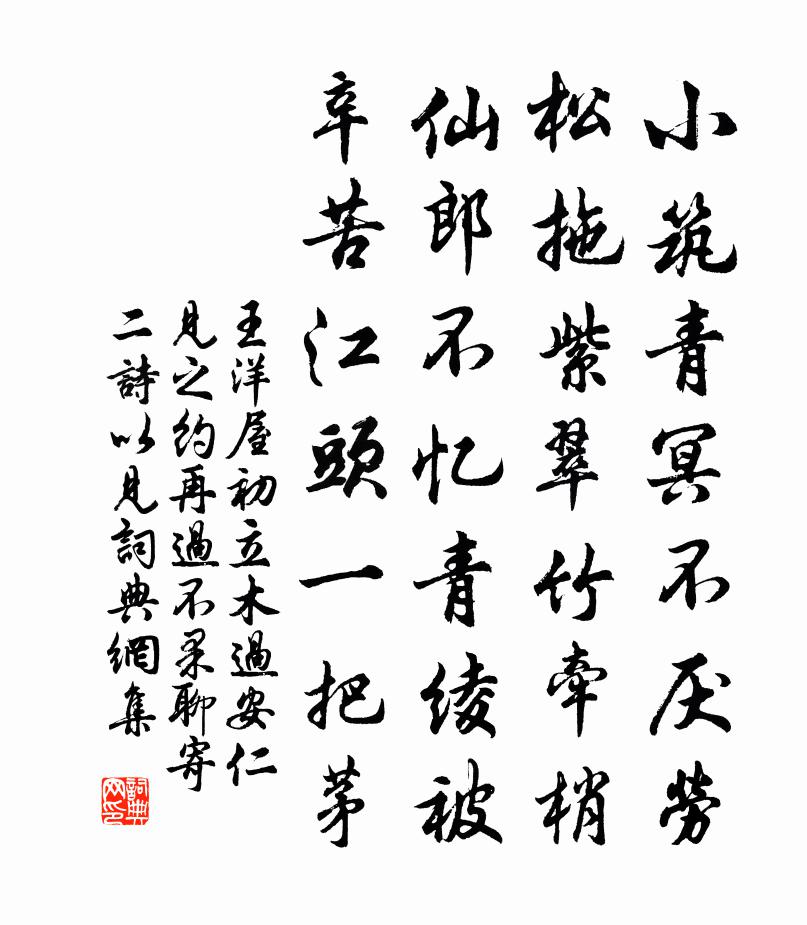 小筑青冥不厌勞
松拖紫翠竹牵梢
仙郎不忆青绫被
辛苦江頭一把茅
王洋屋初立木過安仁
見之約再過不果聊寄
二詩以見詞典網集
詞典網印